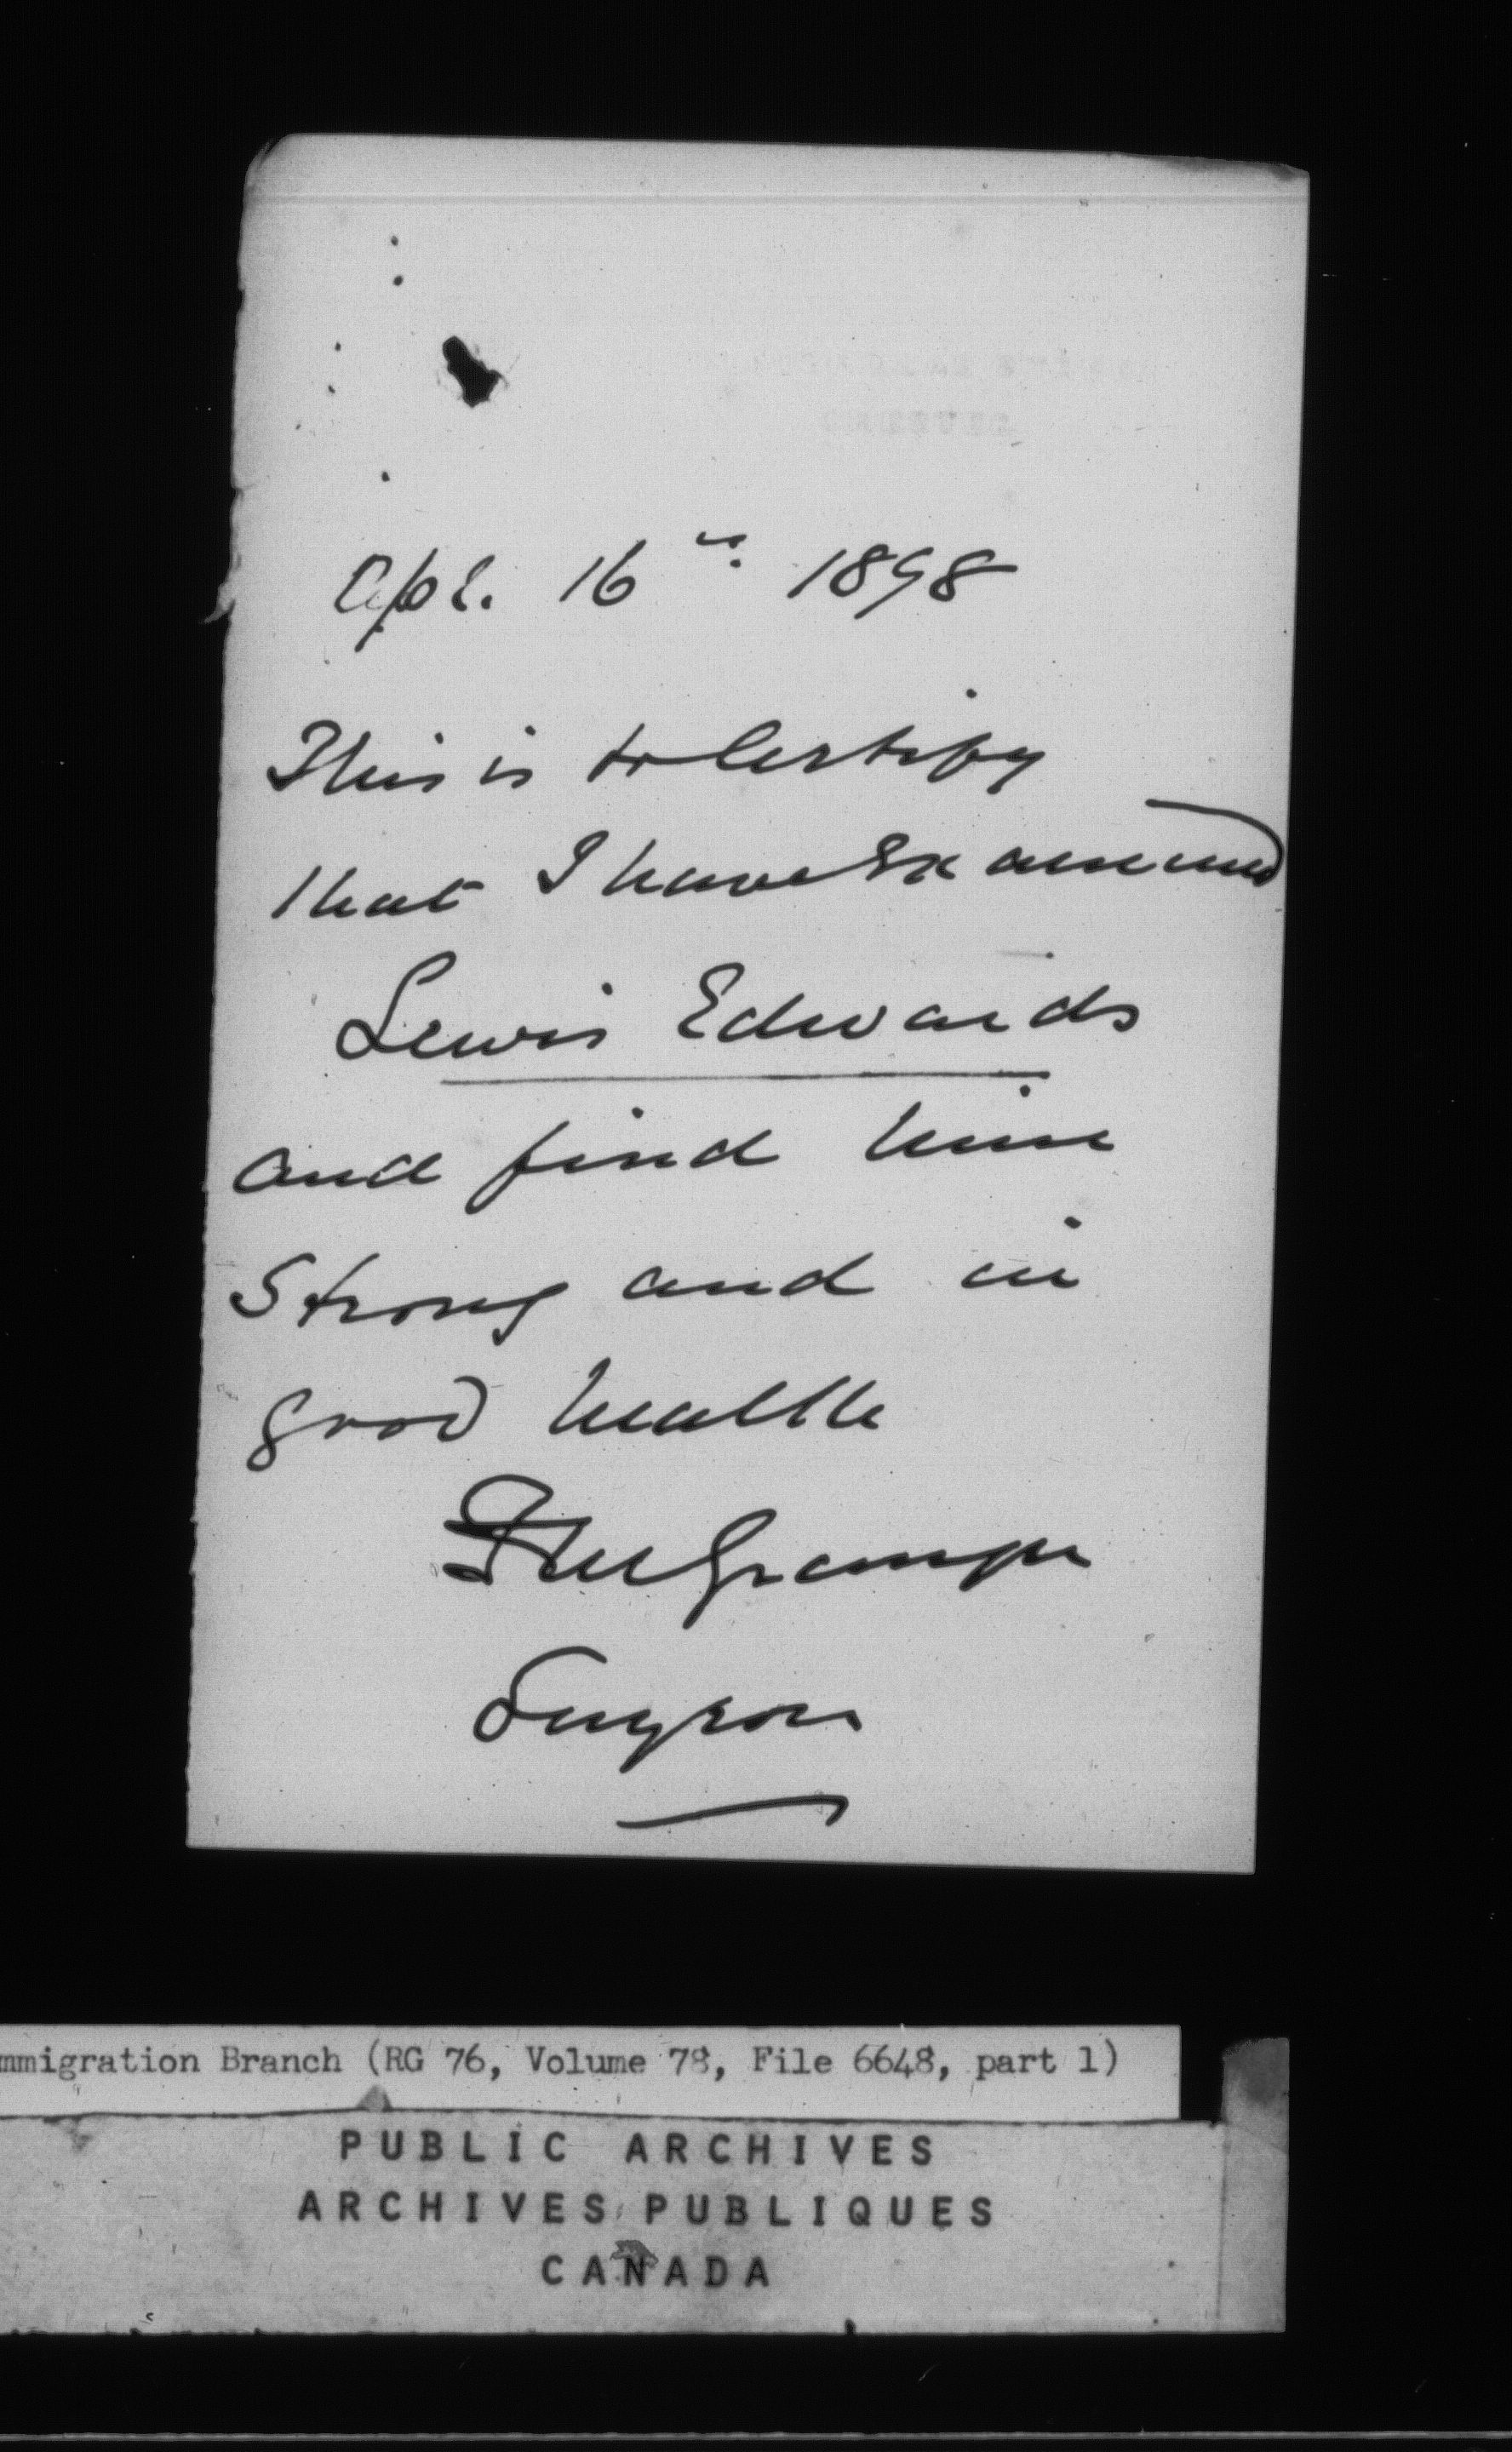 Apl. 16th. 1898
This is to Certify
that I have Examined
Lewis Edwards
and find him
Strong and in
good health
Surgeon
mmigration Branch (RG 76, Volume 78, File 6648, part 1)
PUBLIC ARCHIVES
ARCHIVES PUBLIQUES
CANADA